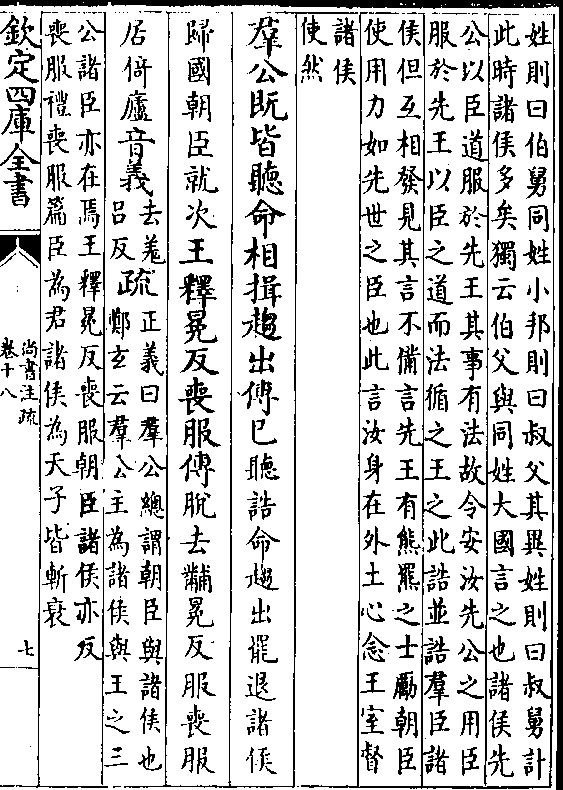 姓則曰伯舅同姓小邦則曰叔父其異姓則曰叔舅計
此時諸侯多矣獨云伯父與同姓大國言之也諸侯先
公以臣道服於先王其事有法故令安汝先公之用臣
服於先王以臣之道而法循之王之此誥並誥羣臣諸
侯但互相發見其言不備言先王有熊羆之士勵朝臣
使用力如先世之臣也此言汝身在外土心念王室督
諸侯
使然
羣公既皆聽命相揖趨出傳已聽誥命趨出罷退諸侯
歸國朝臣就次王釋冕反喪服傳脫去黼冕反服喪服
居倚廬音義去羗吕反疏正義曰羣公總謂朝臣與諸侯也
鄭玄云羣公主為諸侯與王之三
公諸臣亦在焉王釋冕反喪服朝臣諸侯亦反
喪服禮喪服篇臣為君諸侯為天子皆斬衰
欽定四庫全書
尚書注疏
卷十八
七